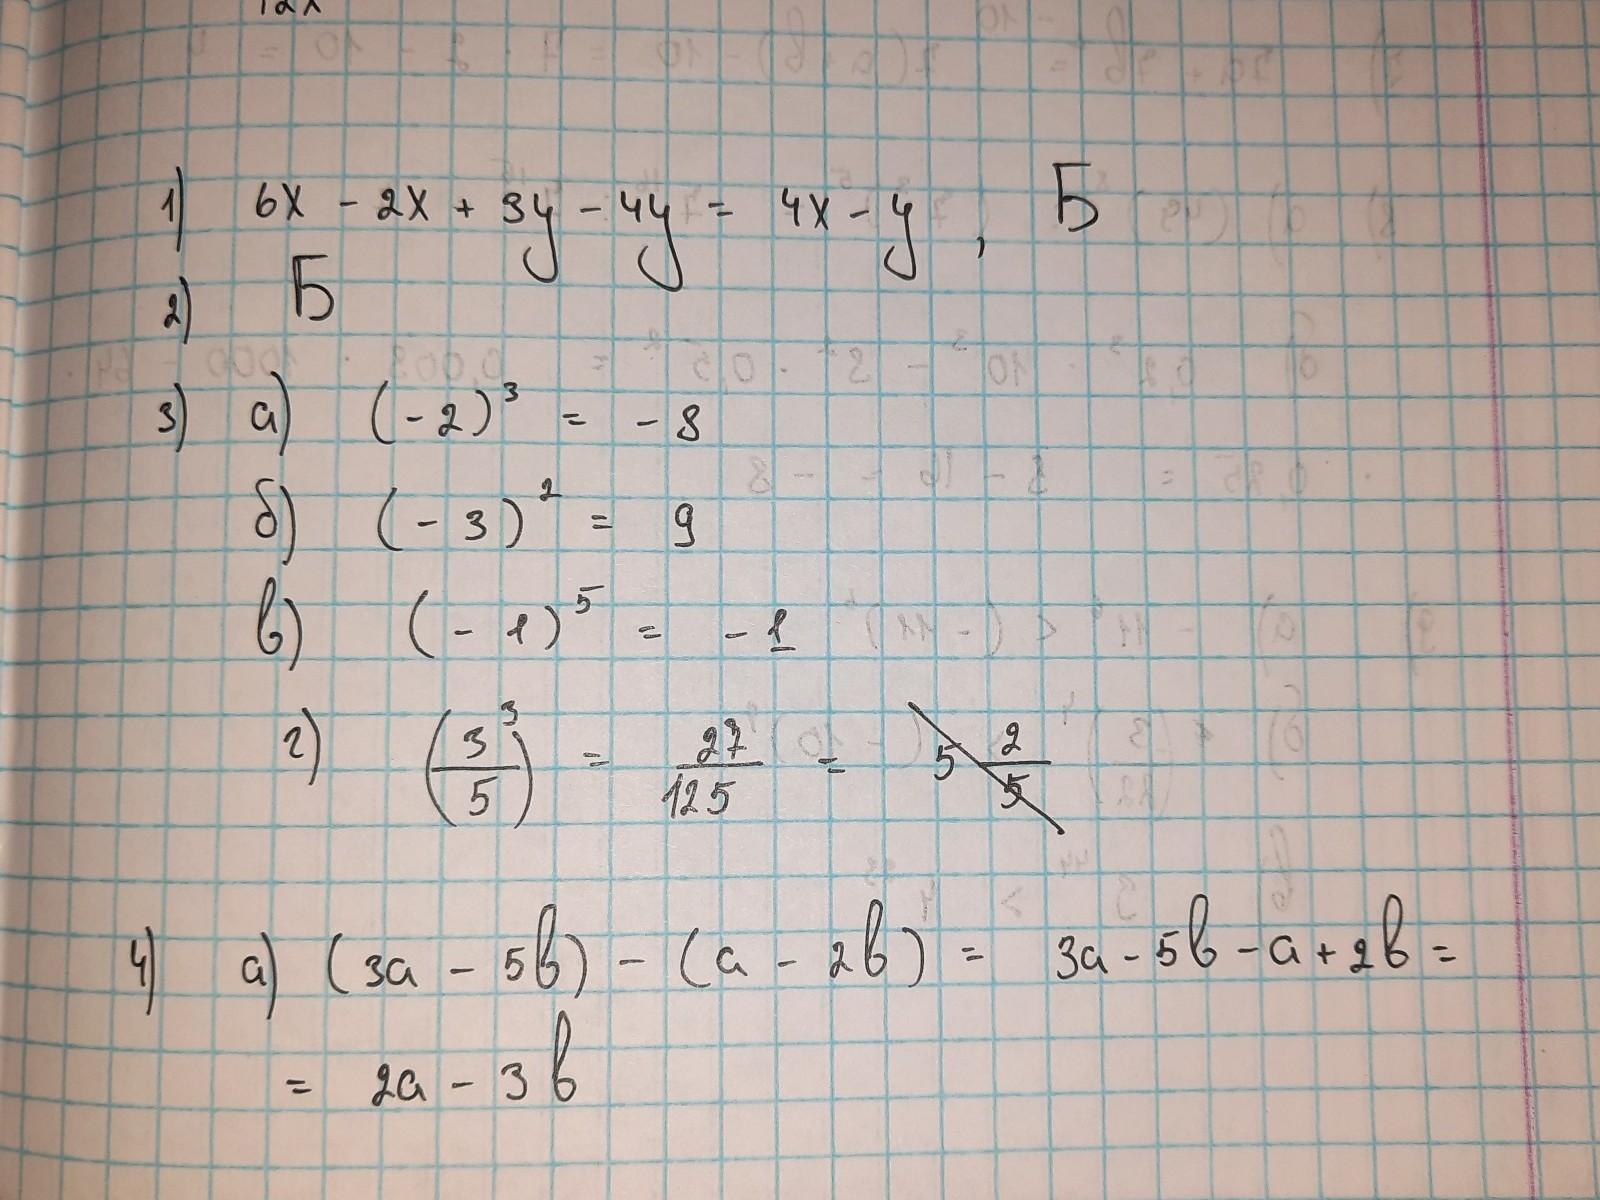 12x
1) 6x - 2x + 3y - 4y = 4x - y, Б
2) Б
3) а) (-2)³ = -8
б) (-3)² = 9
в) (-1)⁵ = -1
г) (3/5)³ = 27/125 = 5 2/5
4) а) (3a - 5b) - (a - 2b) = 3a - 5b - a + 2b =
= 2a - 3b